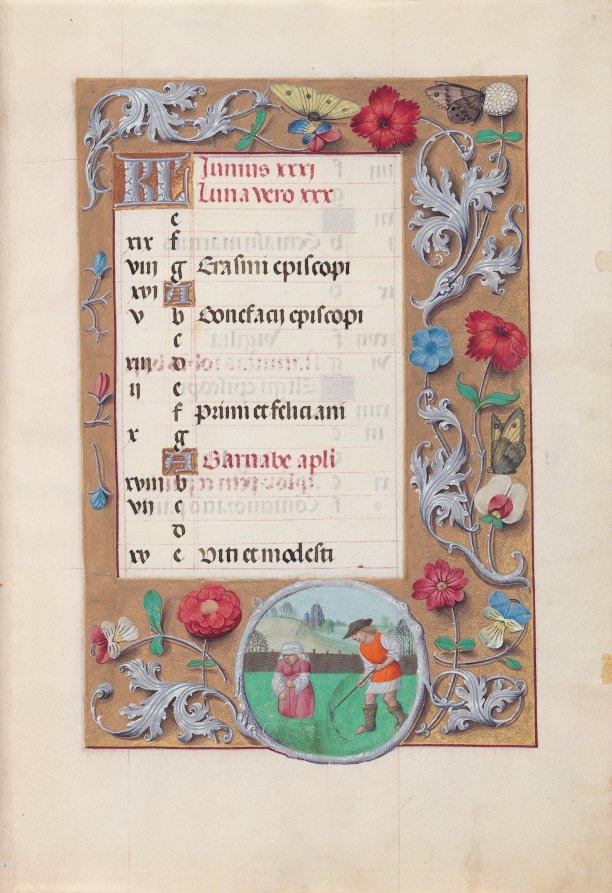 KL Junius xxxi
Luna vero xxx
e
xix f
viii g Erasmi episcopi
xvi A
v b Bonefacij episcopi
c
xiii d
ii e
f primi et feliciani
x g
A Barnabe apli
xviii b
vii c
d
xv e Viti et modesti